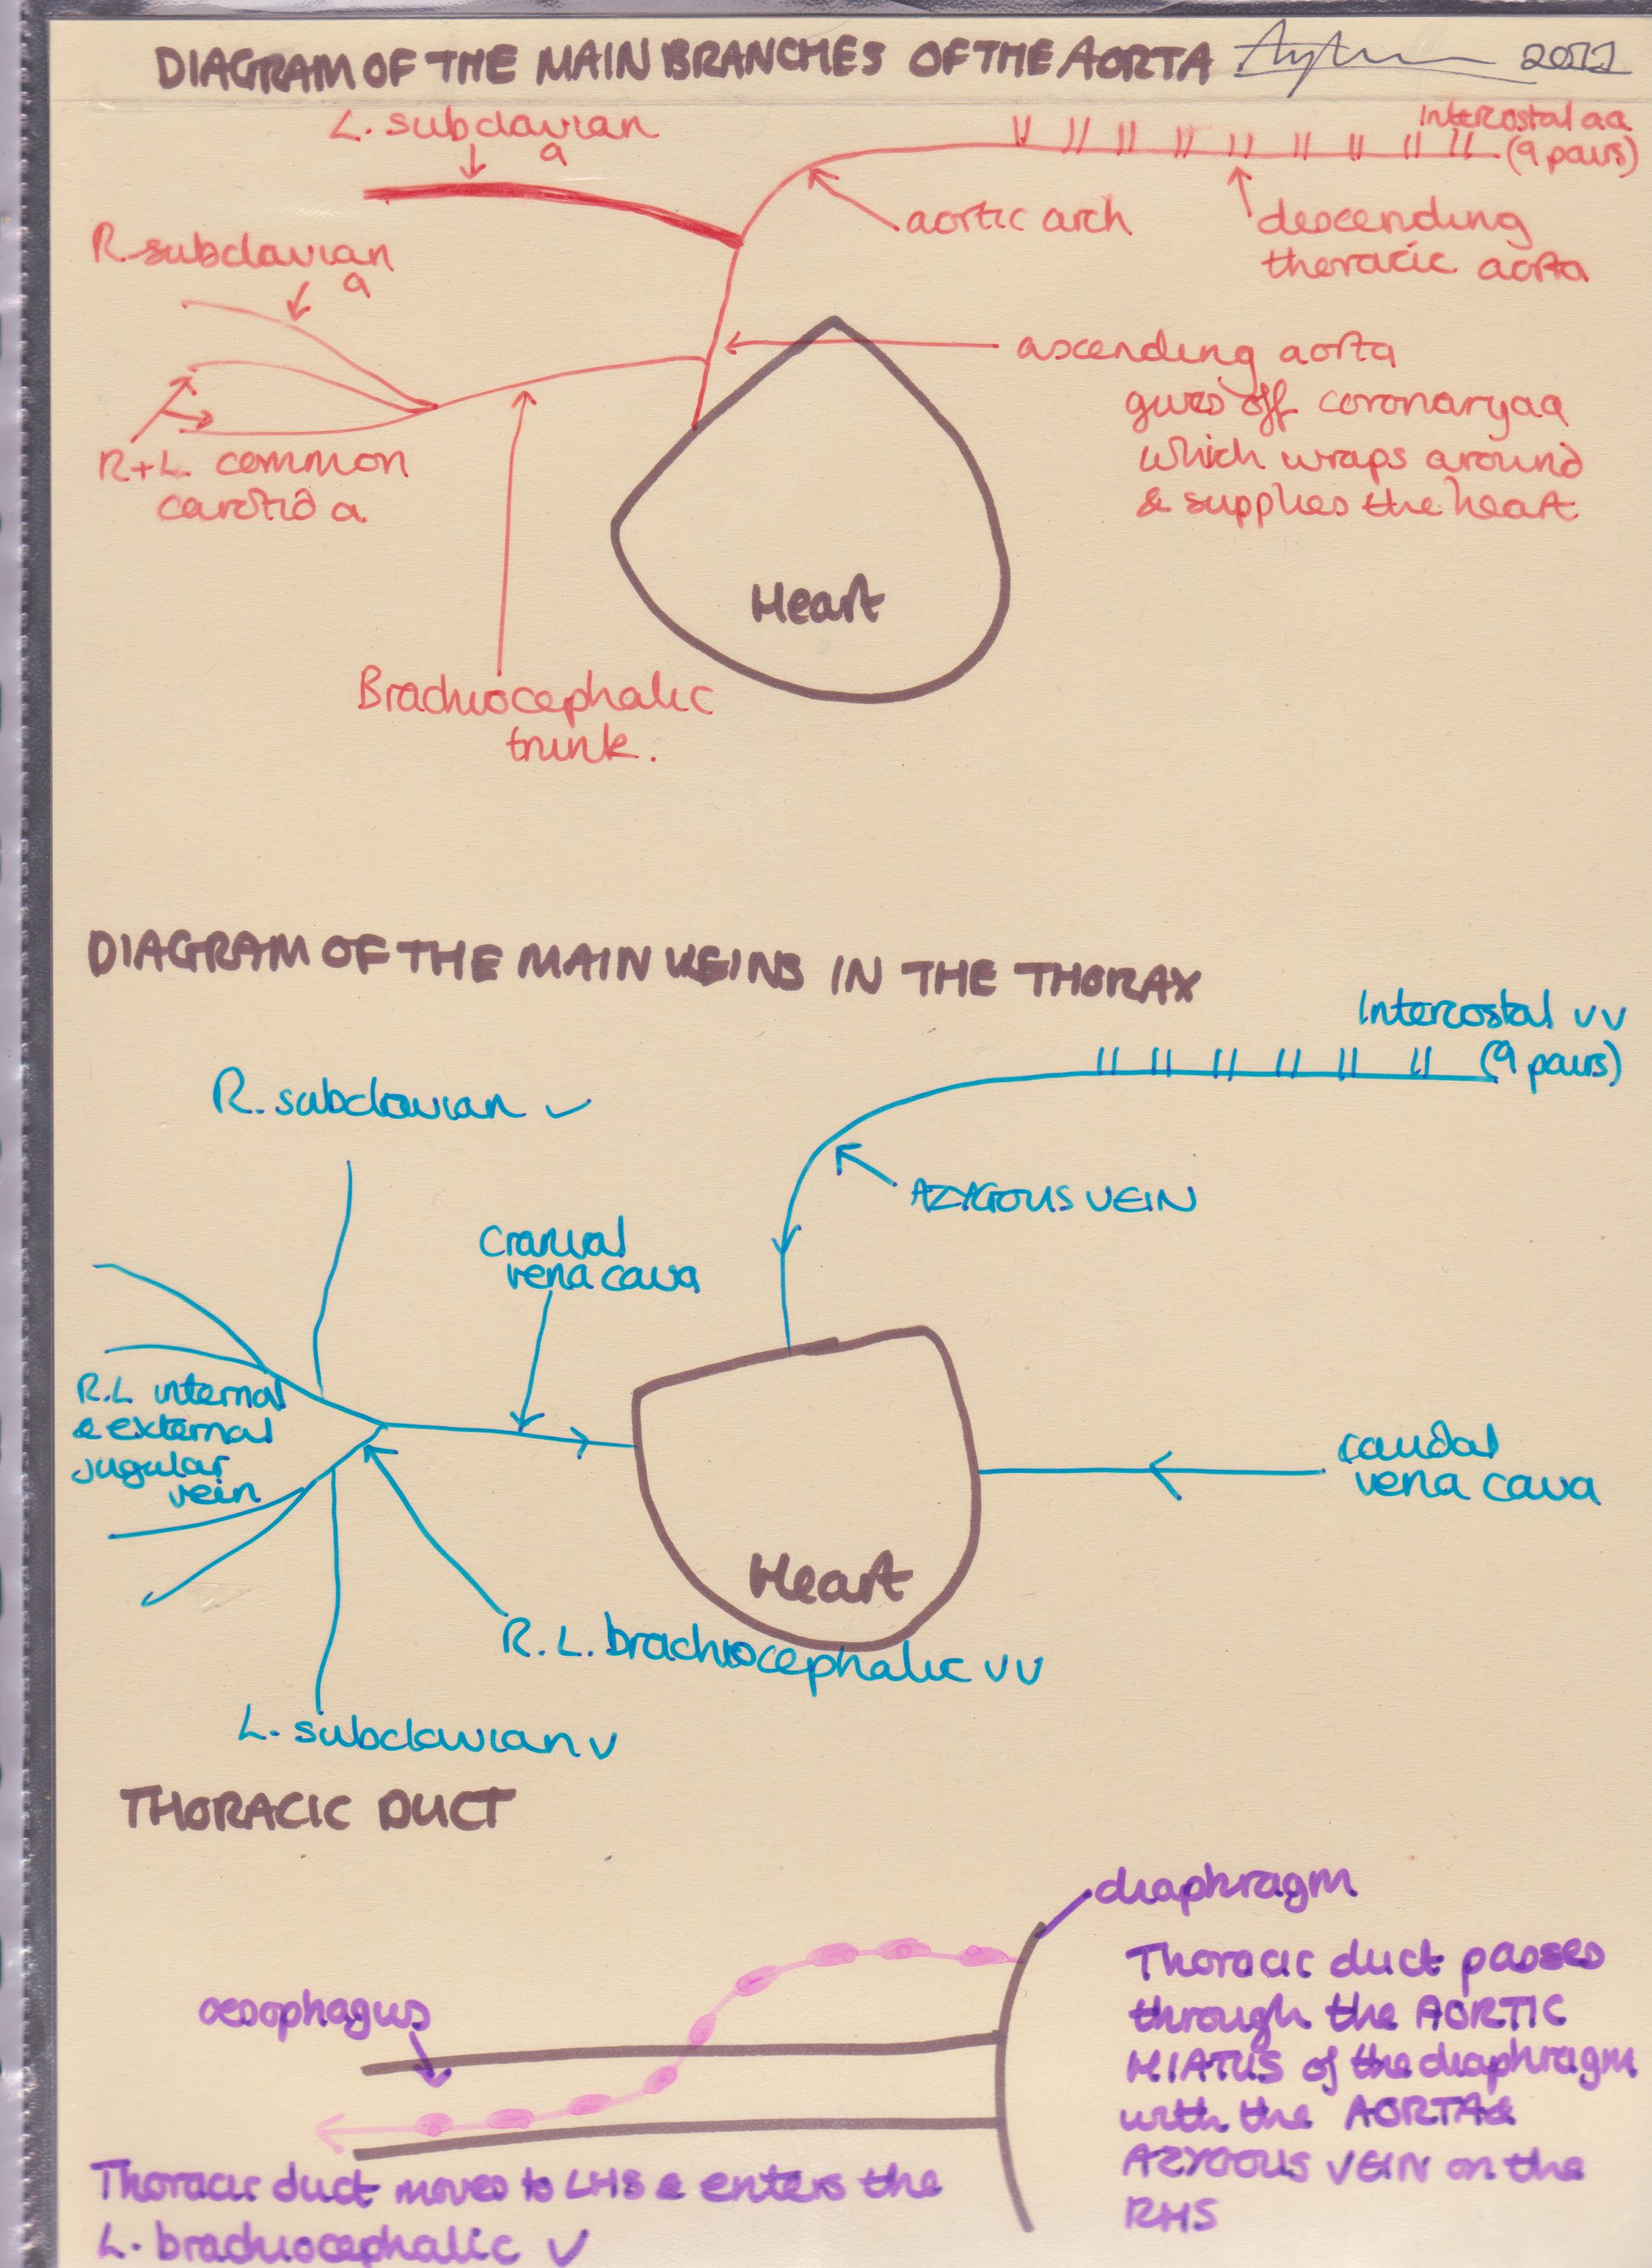 DIAGRAM OF THE MAIN BRANCHES OF THE AORTA
L. subclavian
a
Intercostal aa
(9 pairs)
R. subclavian
a
aortic arch
descending
thoracic aorta
ascending aorta
gives off coronary aa
which wraps around
& supplies the heart
R+L. common
carotid a
Heart
Brachiocephalic
trunk.
DIAGRAM OF THE MAIN VEINS IN THE THORAX
Intercostal vv
(9 pairs)
R. subclavian v
AZYGOUS VEIN
Cranial
vena cava
R.L internal
& external
jugular
vein
caudal
vena cava
Heart
R. L. brachiocephalic vv
L. subclavian v
THORACIC DUCT
diaphragm
oesophagus
Thoracic duct passes
through the AORTIC
HIATUS of the diaphragm
with the AORTA &
AZYGOUS VEIN on the
RHS
Thoracic duct moves to LHS & enters the
L. brachiocephalic v